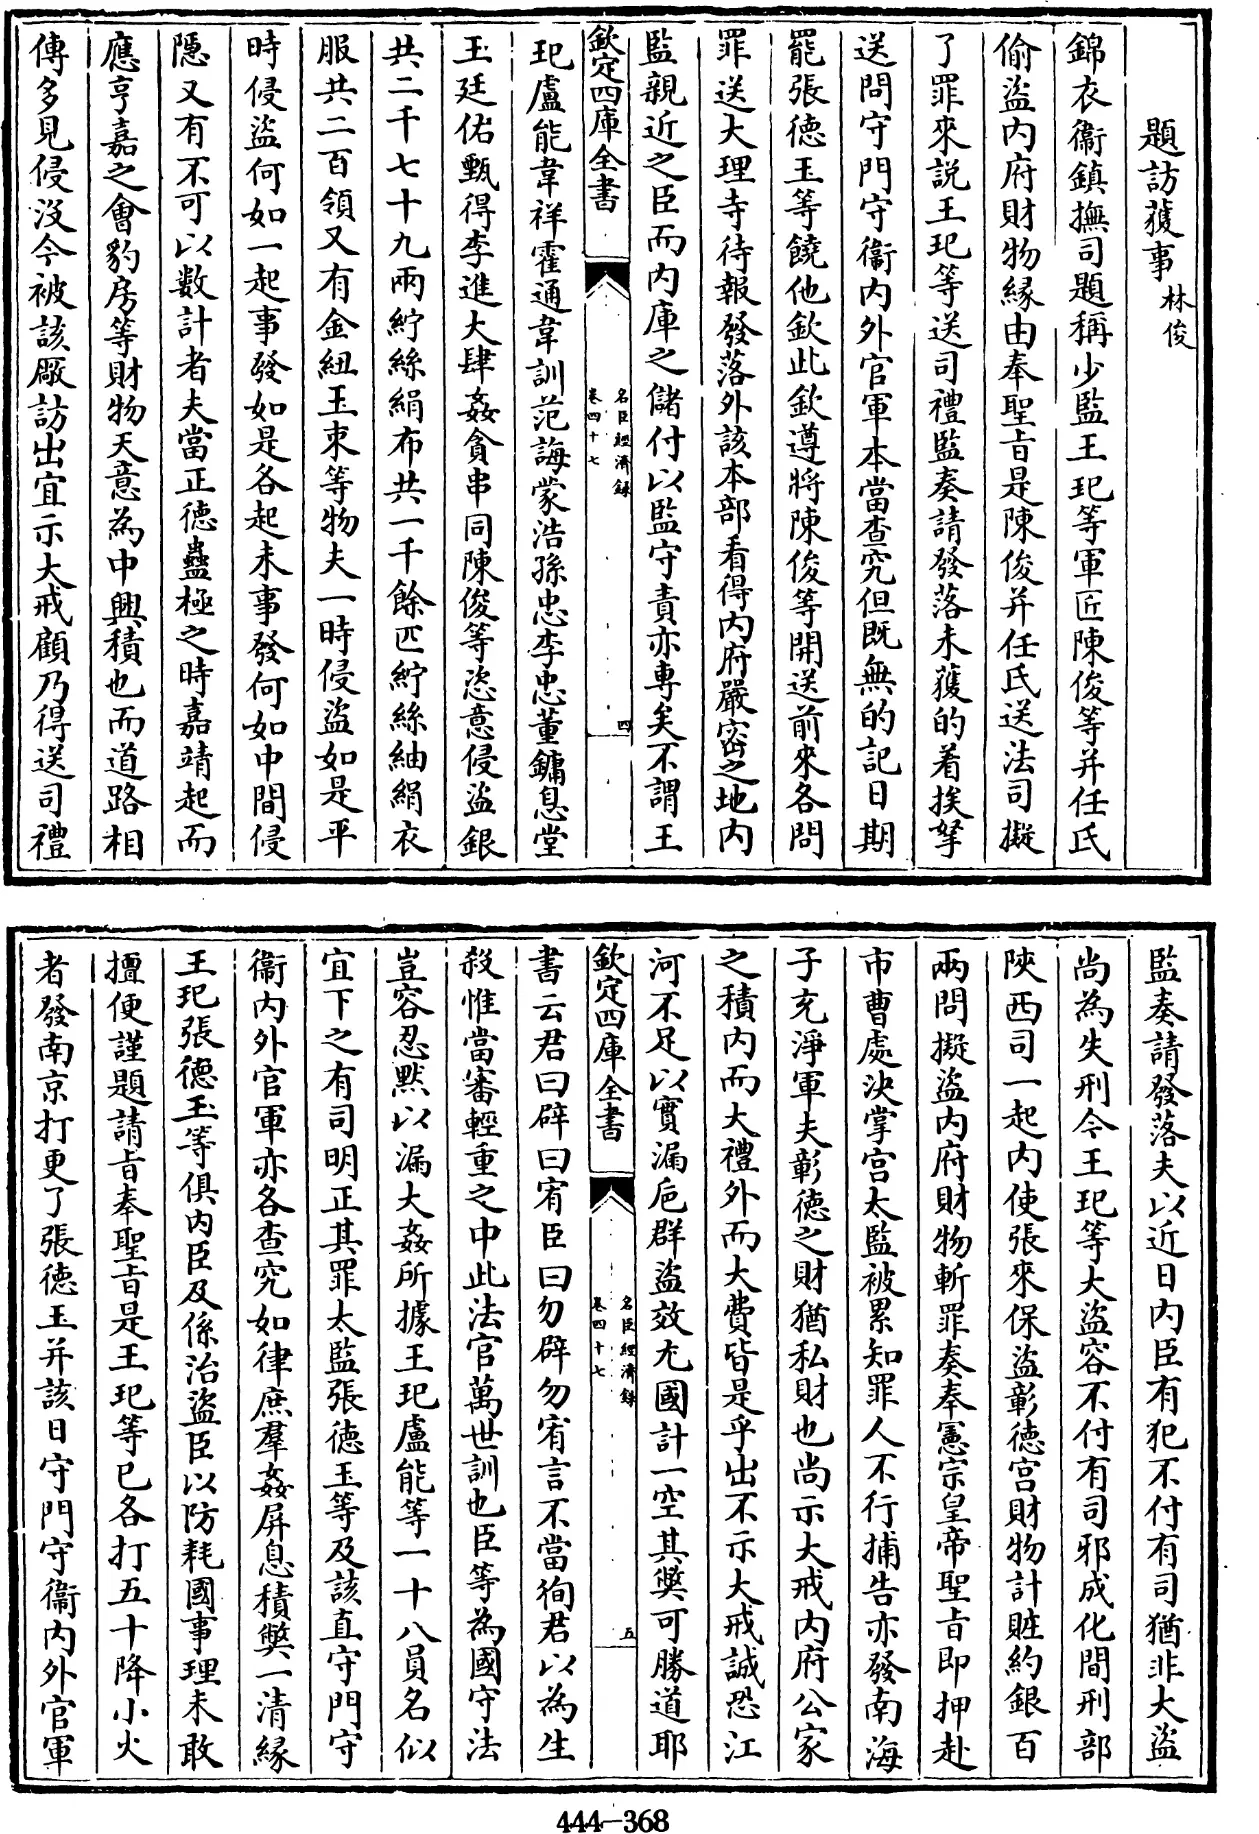 題訪獲事林俊
錦衣衞鎮撫司題稱少監王玘等軍匠陳俊等并任氏
偷盜内府財物緣由奉聖旨是陳俊并任氏送法司擬
了罪來説王玘等送司禮監奏請發落未獲的着挨拏
送問守門守衞内外官軍本當查究但既無的記日期
罷張德玉等饒他欽此欽遵將陳俊等開送前來各問
罪送大理寺待報發落外該本部看得内府嚴密之地内
監親近之臣而内庫之儲付以監守責亦專矣不謂王
欽定四庫全書
名臣經濟録
卷四十七
四
玘盧能韋祥霍通韋訓范誨蒙浩孫忠李忠董鏞息堂
玉廷佑甄得李進大肆姦貪串同陳俊等恣意侵盜銀
共二千七十九兩紵絲絹布共一千餘匹紵絲紬絹衣
服共二百領又有金紐玉朿等物夫一時侵盜如是平
時侵盜何如一起事發如是各起未事發何如中間侵
隱又有不可以數計者夫當正德蠱極之時嘉靖起而
應亨嘉之會豹房等財物天意為中興積也而道路相
傳多見侵沒今被該厰訪出宜示大戒顧乃得送司禮
監奏請發落夫以近日内臣有犯不付有司猶非大盜
尚為失刑今王玘等大盜容不付有司邪成化間刑部
陜西司一起内使張來保盜彰德宮財物計贓約銀百
兩問擬盜内府財物斬罪奏奉憲宗皇帝聖旨即押赴
市曹處決掌宮太監被累知罪人不行捕告亦發南海
子充淨軍夫彰德之財猶私財也尚示大戒内府公家
之積内而大禮外而大費皆是乎出不示大戒誠恐江
河不足以實漏巵群盜效尤國計一空其獘可勝道耶
欽定四庫全書
名臣經濟録
卷四十七
五
書云君曰辟曰宥臣曰勿辟勿宥言不當徇君以為生
殺惟當審輕重之中此法官萬世訓也臣等為國守法
豈容忍默以漏大姦所據王玘盧能等一十八員名似
宜下之有司明正其罪太監張德玉等及該直守門守
衞内外官軍亦各查究如律庶羣姦屏息積獘一清緣
王玘張德玉等俱内臣及係治盜臣以防耗國事理未敢
擅便謹題請旨奉聖旨是王玘等已各打五十降小火
者發南京打更了張德玉并該日守門守衞内外官軍
444-368